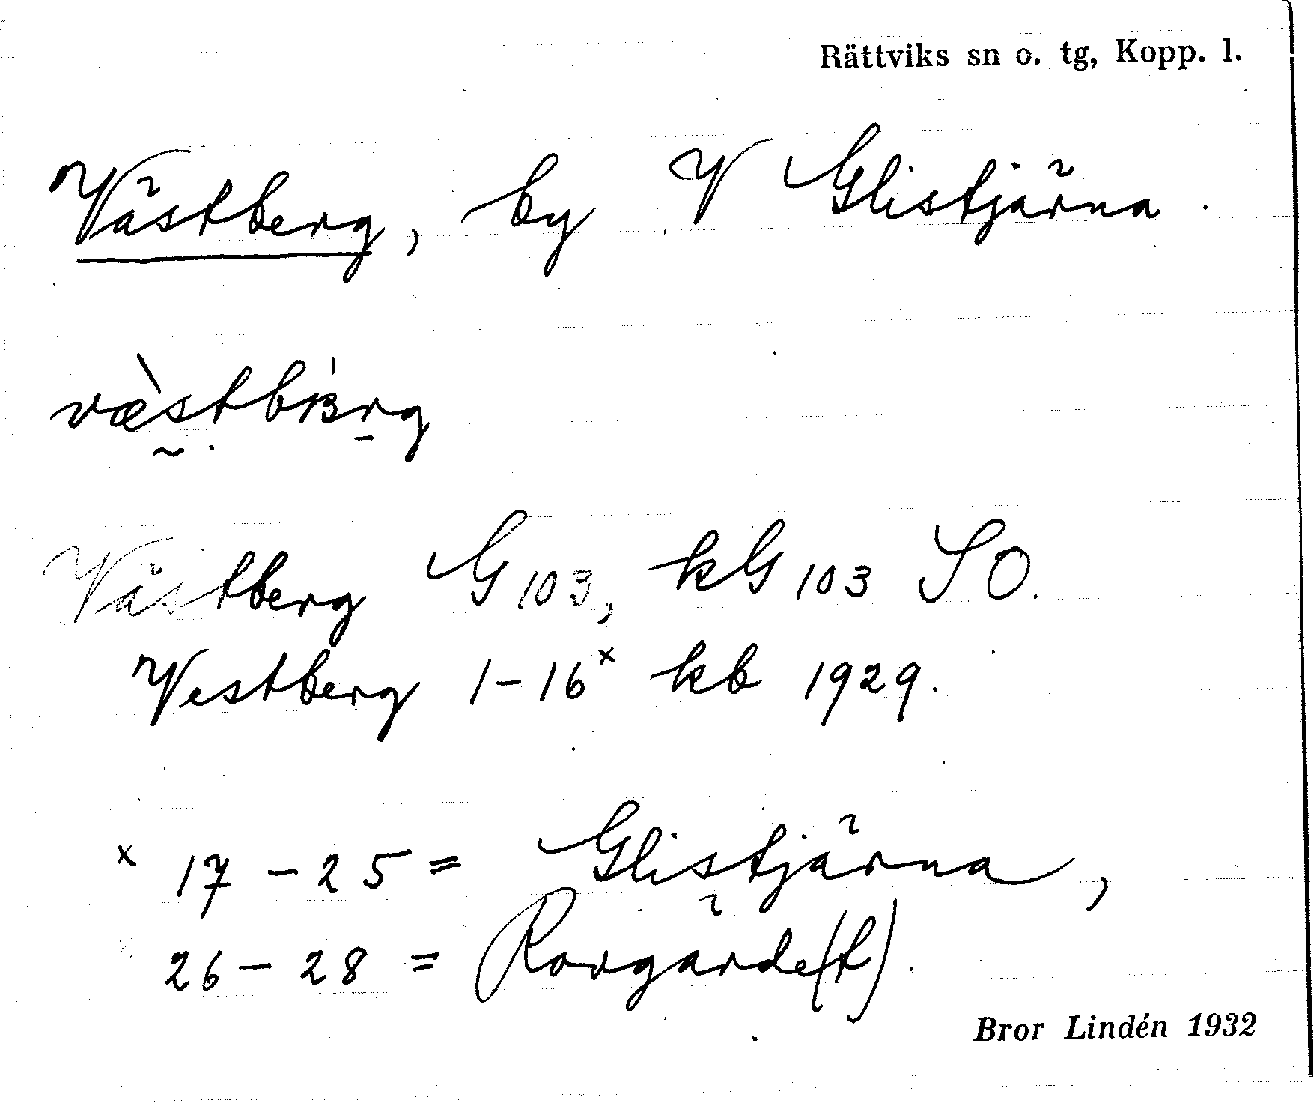 Rättviks sn o. tg, Kopp. l.
Västberg, by V Glistjärna.
Västberg G 103, kG 103 SO.
Vestberg 1-16ˣ kb 1929.
x 17-25 = Glistjärna,
26-28 = Rovgärde(t).
Bror Lindén 1932